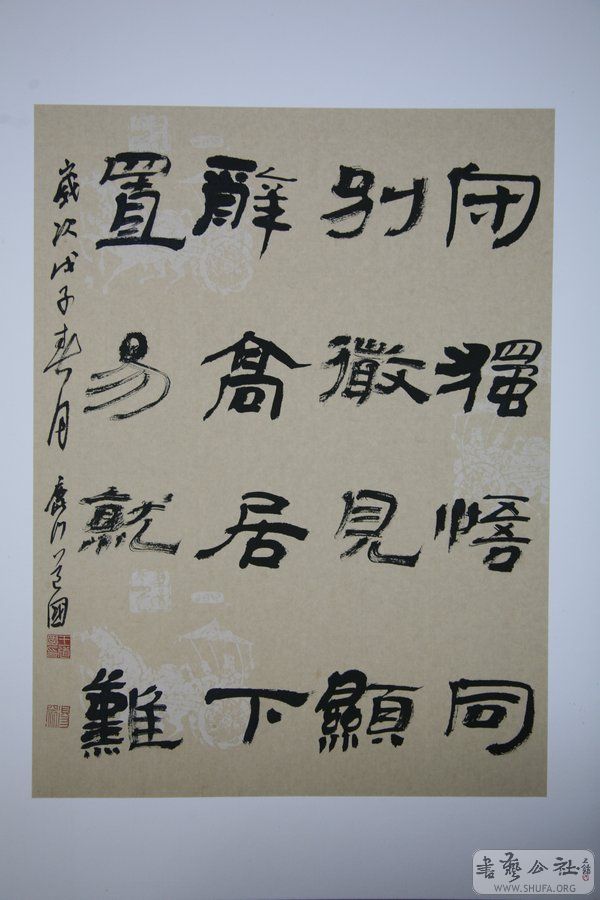 獨悟同
別微見顯
辭高居下
置易就難
歲次戊子春月 道國
書藝公社
WWW.SHUFA.ORG